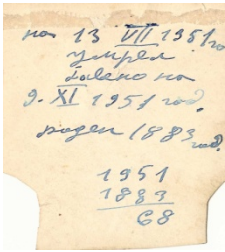 на 13 VII 1951 го
умрел
завено на
9. XI 1951 год.
роден 1883 год.
1951
1883
68